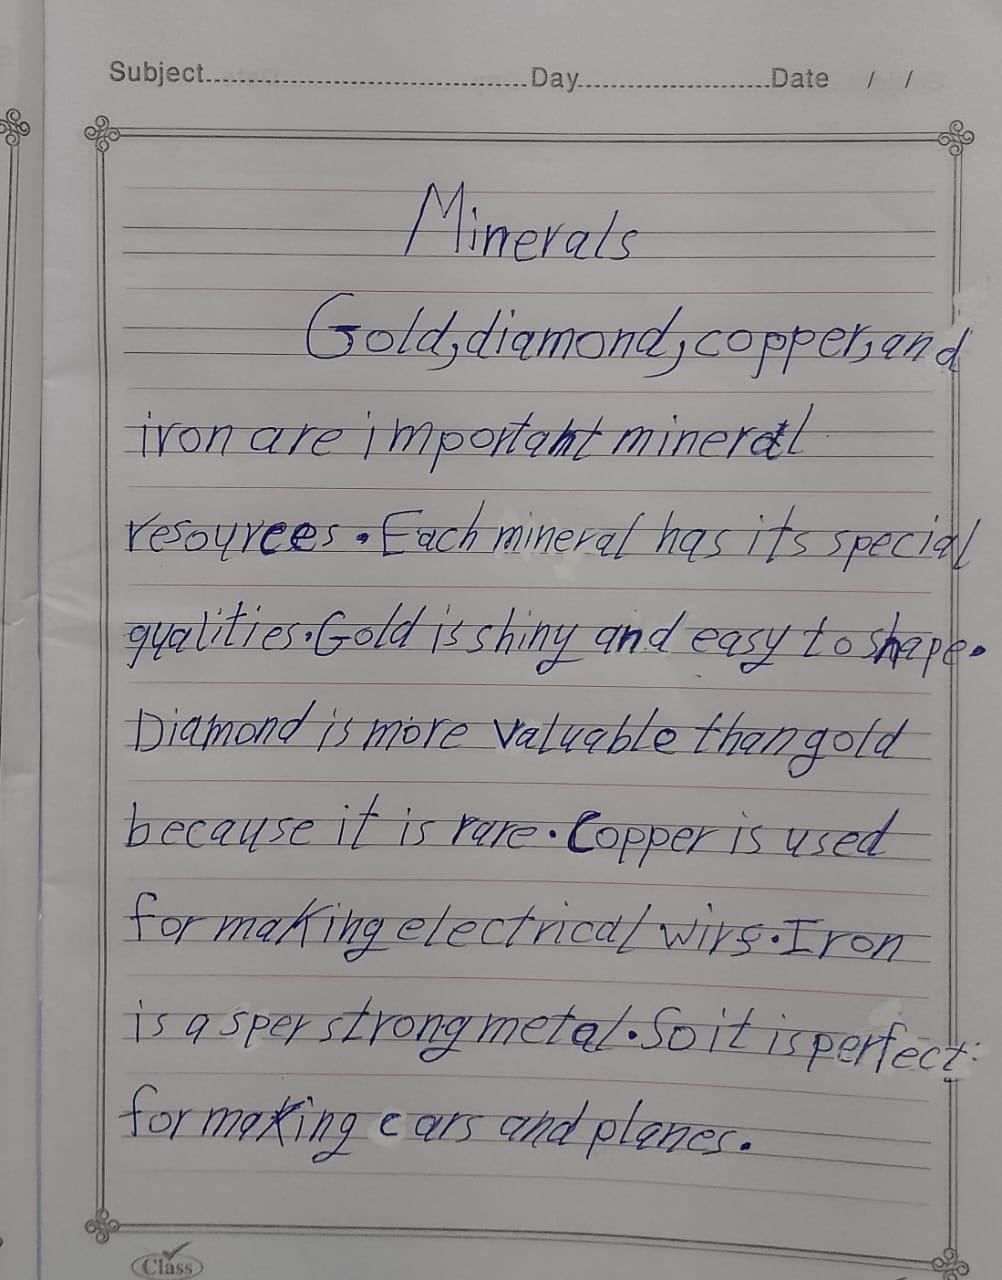 Subject..............................Day......................Date / /
Minerals
Gold, diamond, copper, and
iron are important mineral
resources. Each mineral has its special
qualities. Gold is shiny and easy to shape.
Diamond is more valuable than gold
because it is rare. Copper is used
for making electrical wirs. Iron
is a sper strong metal. So it is perfect
for making cars and planes.
Class